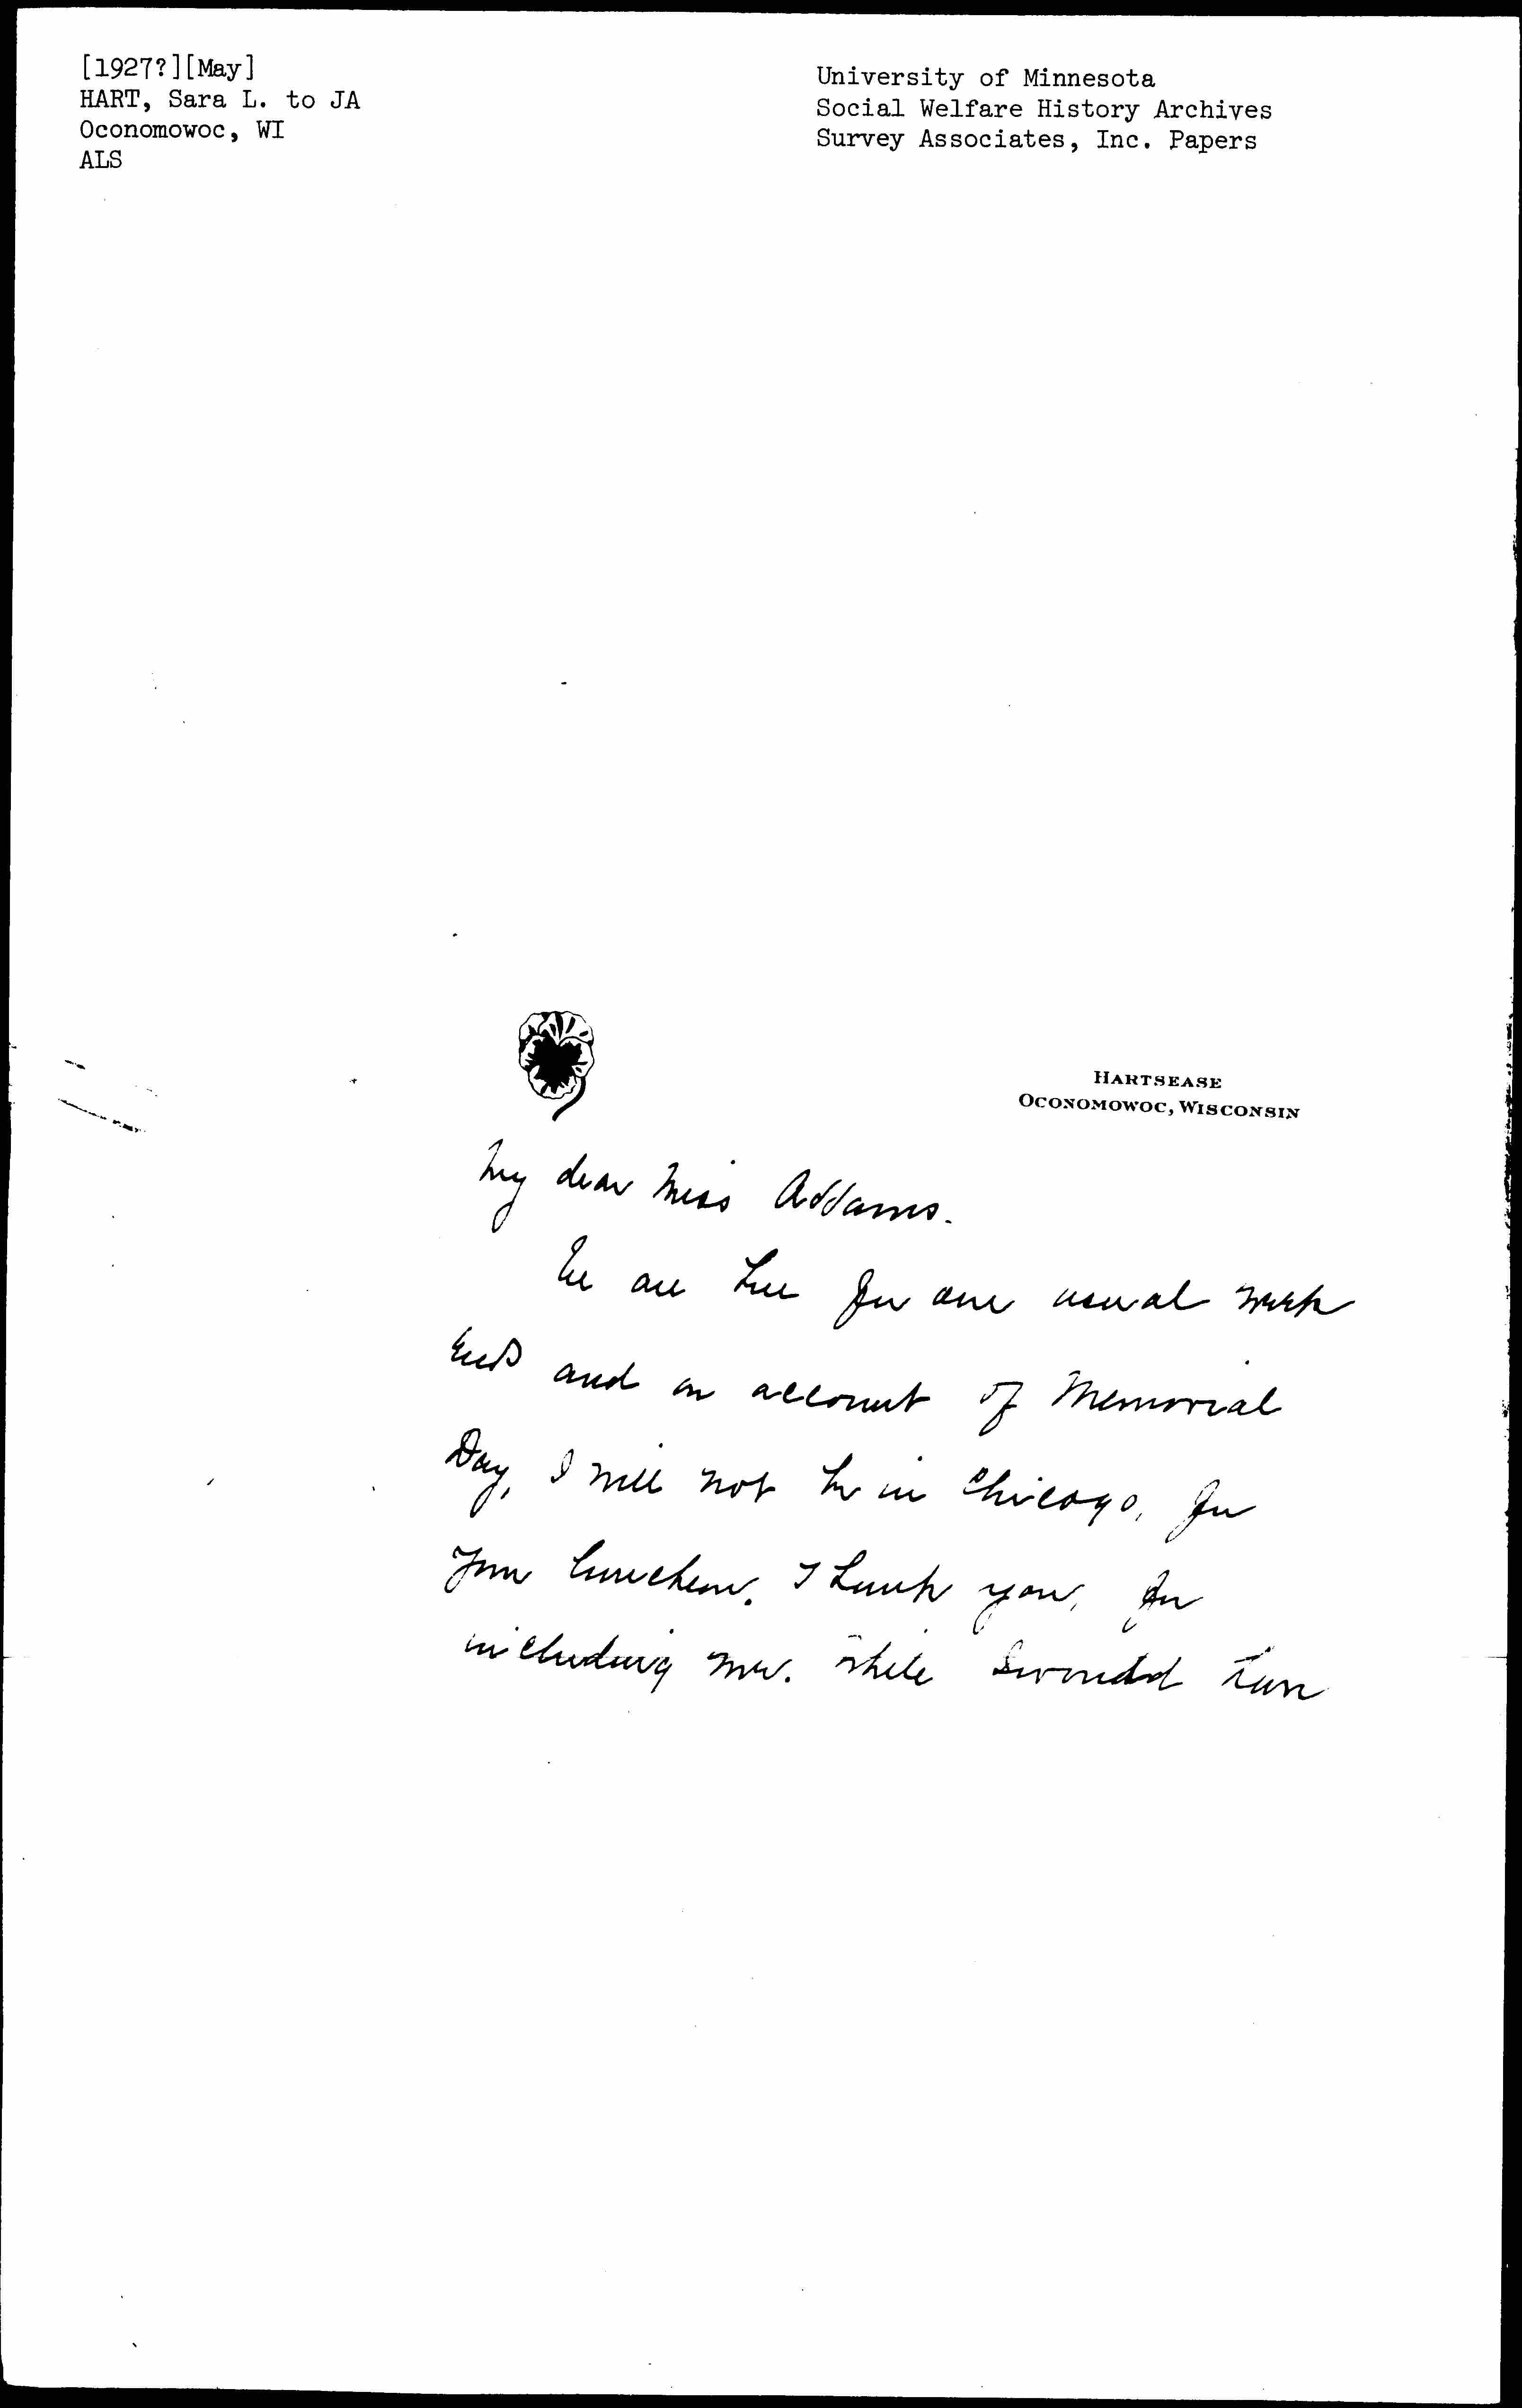 [1927?][May]
HART, Sara L. to JA
Oconomowoc, WI
ALS
University of Minnesota
Social Welfare History Archives
Survey Associates, Inc. Papers
HARTSEASE
OCONOMOWOC, WISCONSIN
My dear Miss Addams.
We are here for our usual week
ends and on account of Memorial
Day, I will not be in Chicago, for
your luncheon. Thank you, for
including me. While I would